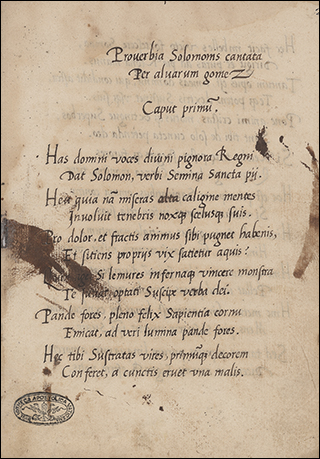 Proverbia Solomonis cantata
Per alvarum gomeZ
Caput primũ.
Has domini voces divini pignora Regni
Dat Solomon, verbi Semina Sancta pij.
Heu quia nã miseras alta caligine mentes
Involuit tenebris noxq; scelusq; suis.
Pro dolor, et fractis animus sibi pugnet habenis,
Et sitiens proprijs vix satietur aquis?
Si lemures infernaq; vincere monstra
Te optati Suscipe verba dei.
Pande fores, pleno felix Sapientia cornu
Emicat, ad veri lumina pande fores.
Hec tibi Substratas vires, primũq; decorem
Conferet, a cunctis eruet vna malis.